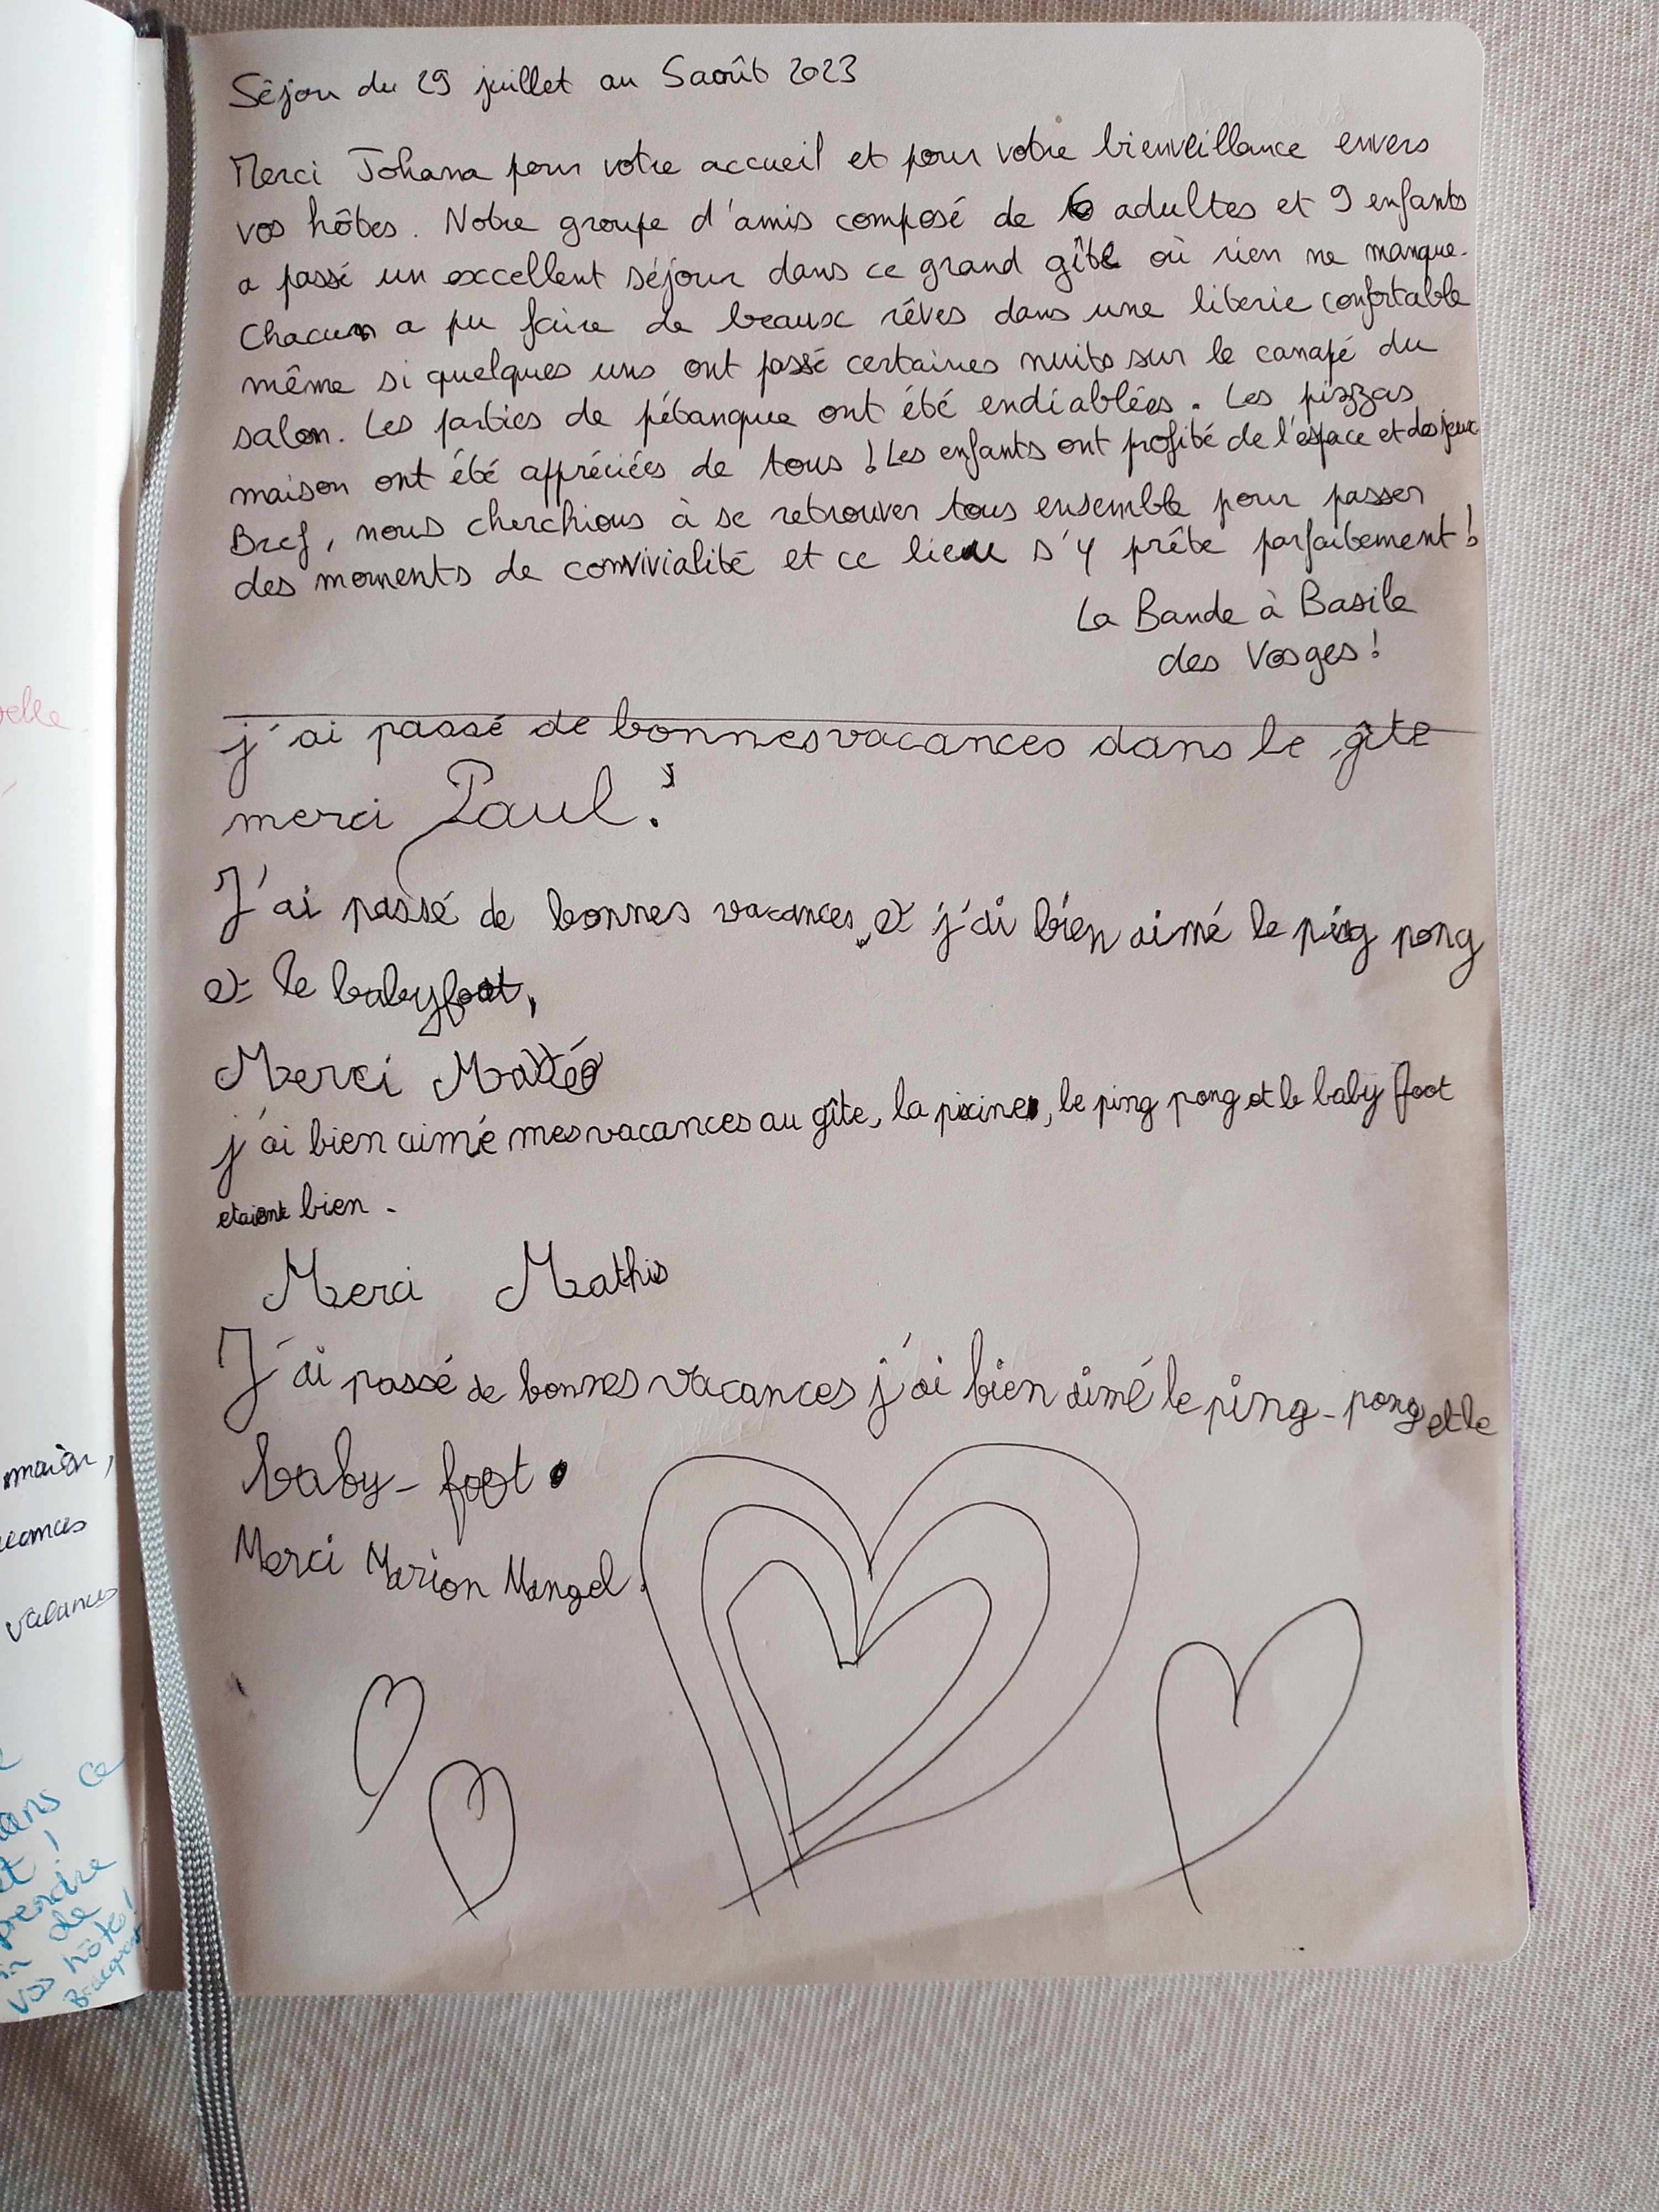 Séjour du 29 juillet au 5 août 2023
Merci Johana pour votre accueil et pour votre bienveillance envers
vos hôtes. Notre groupe d'amis composé de 6 adultes et 9 enfants
a passé un excellent séjour dans ce grand gîte où rien ne manque.
Chacun a pu faire de beaux rêves dans une literie confortable
même si quelques uns ont passé certaines nuits sur le canapé du
salon. Les parties de pétanque ont été endiablées. Les pizzas
maison ont été appréciées de tous ! Les enfants ont profité de l'espace et des jeux
Bref, nous cherchions à se retrouver tous ensemble pour passer
des moments de convivialité et ce lieu s'y prête parfaitement !
La Bande à Basile
des Vosges !
j'ai passé de bonnes vacances dans le gîte
merci Paul !
J'ai passé de bonnes vacances et j'ai bien aimé le ping pong
et le babyfoot,
Merci Mattéo
j'ai bien aimé mes vacances au gîte, la piscine, le ping pong et le baby foot
etaient bien.
Merci Mathis
J'ai passé de bonnes vacances j'ai bien aimé le ping-pong et le
baby-foot.
Merci Marion Mangel.
vacances
ans ce
et !
prendre
de
vos hôtes !